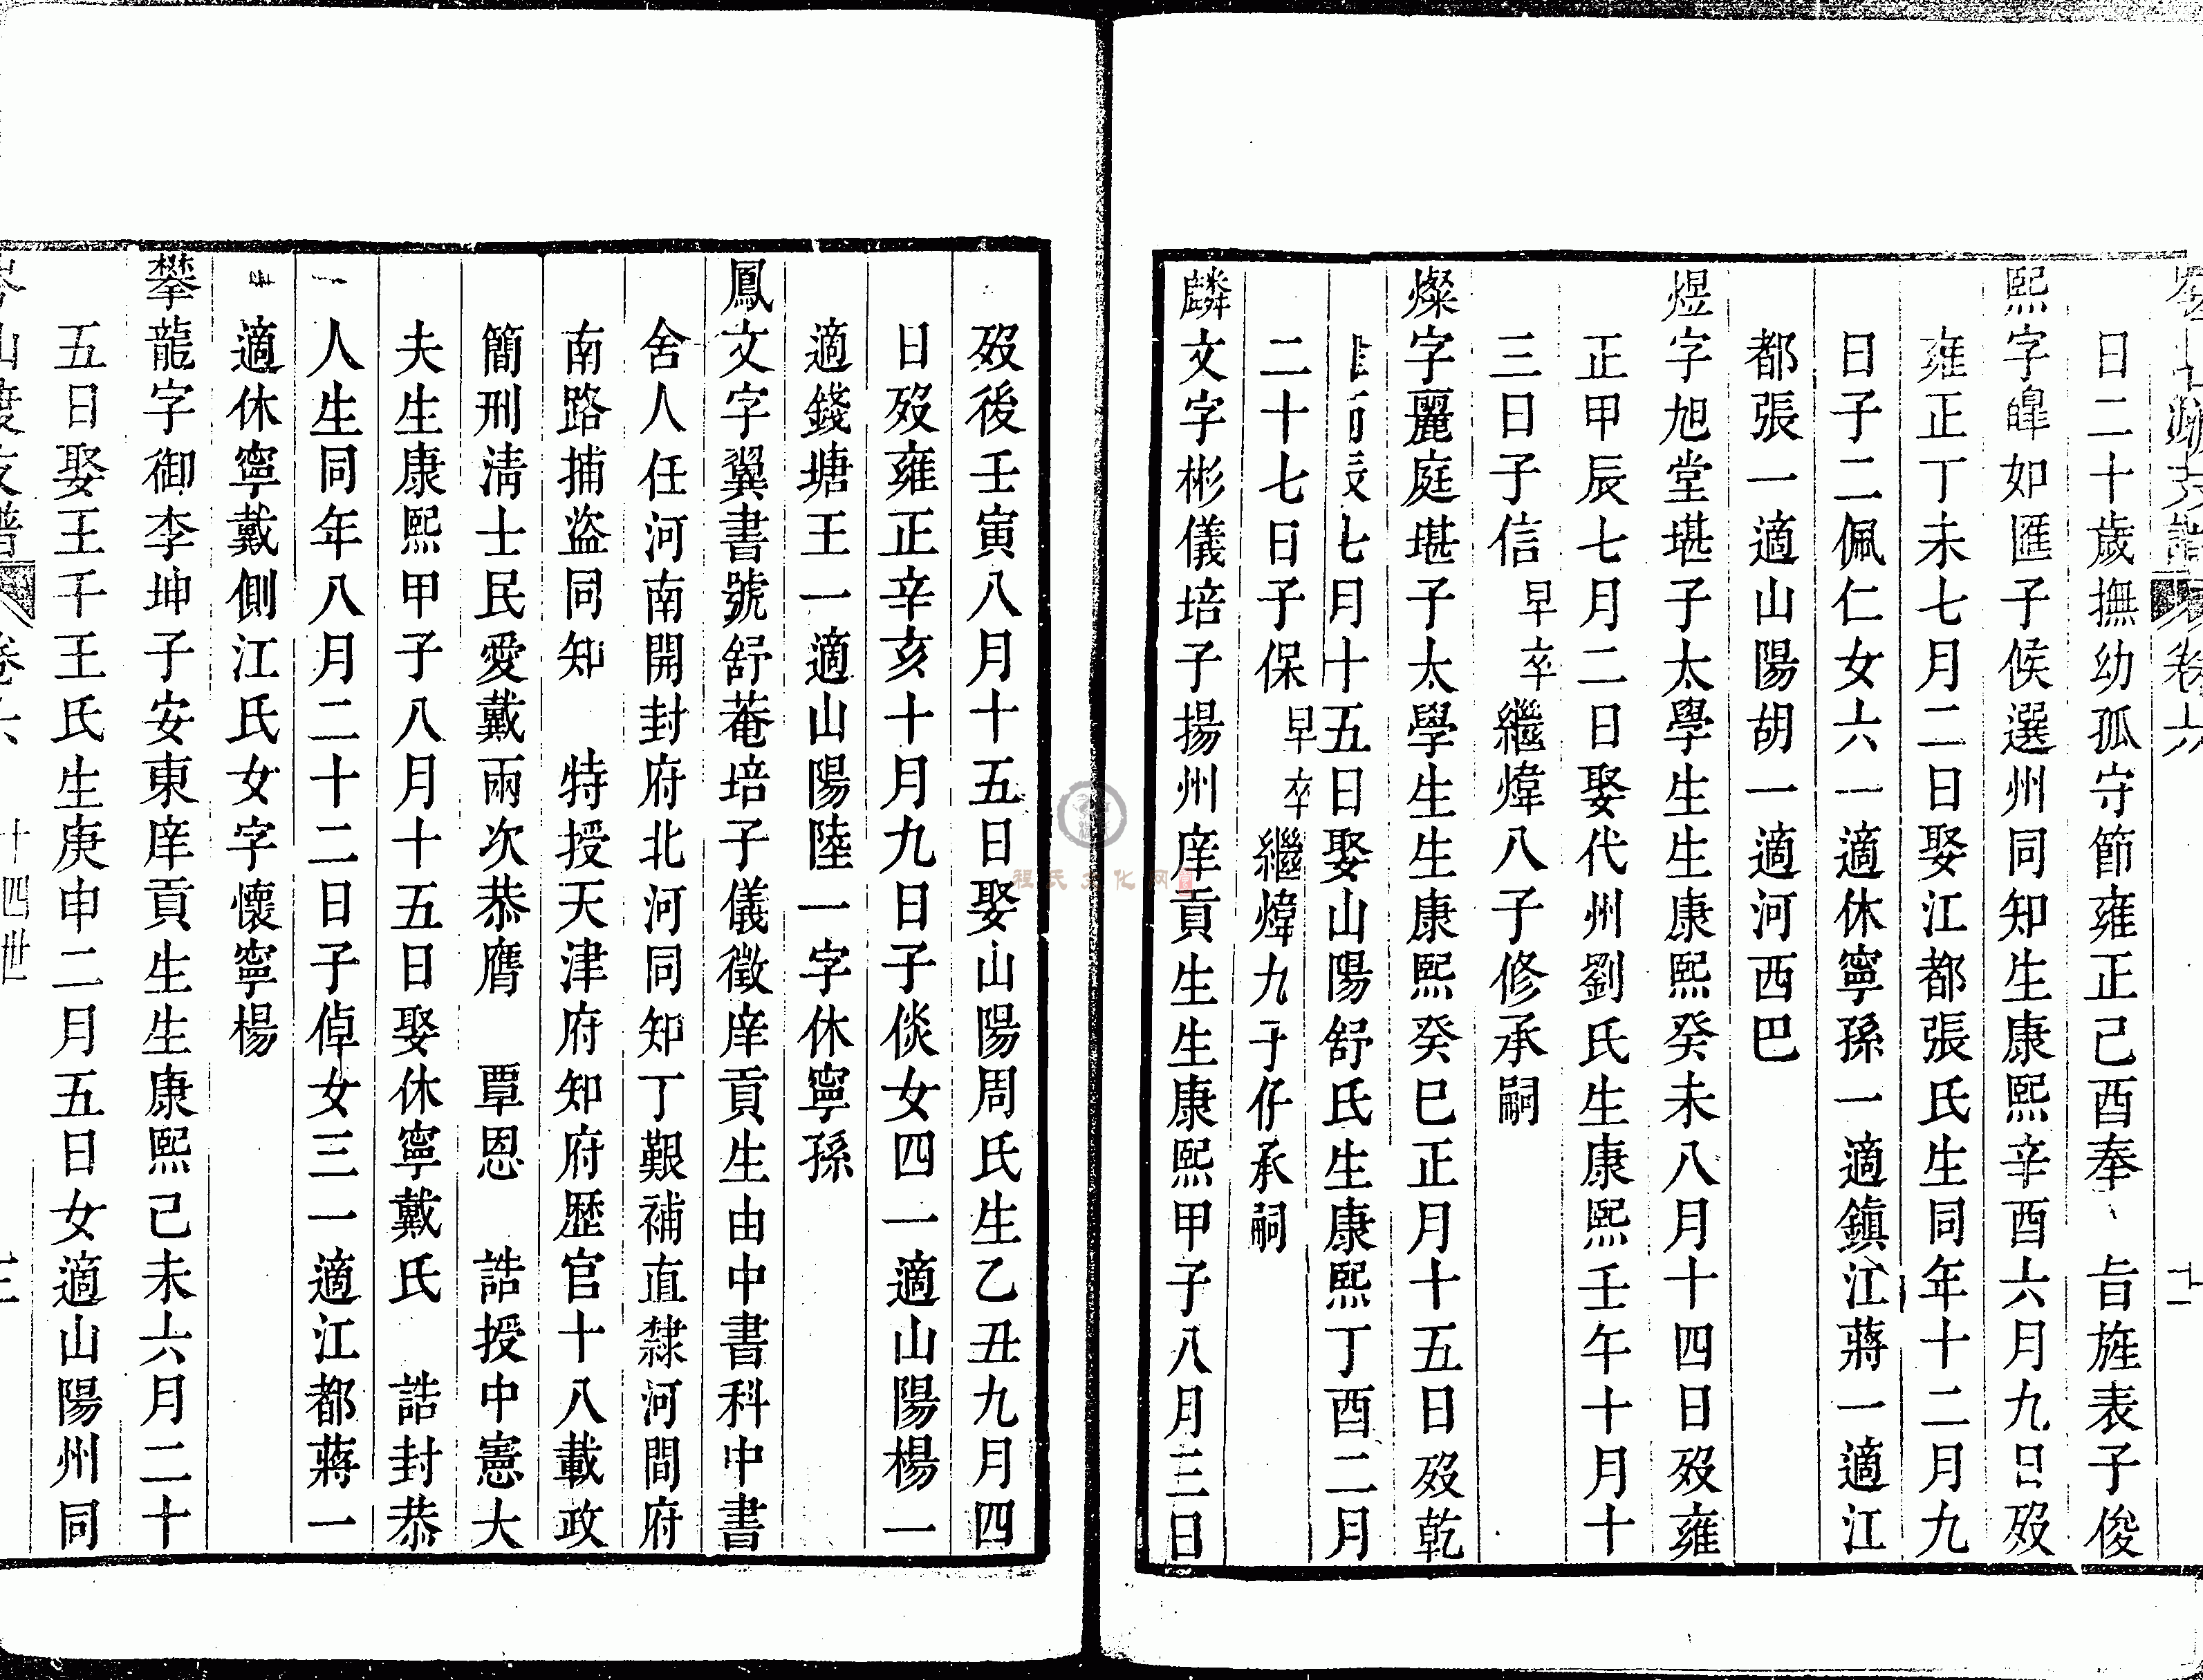 日二十歲撫幼孤守節雍正己酉奉 旨旌表子俊
熙字皥如匯子候選州同知生康熙辛酉六月九日歿
雍正丁未七月二日娶江都張氏生同年十二月九
日子二佩仁女六一適休寧孫一適鎮江蔣一適江
都張一適山陽胡一適河西巴
煜字旭堂堪子太學生生康熙癸未八月十四日歿雍
正甲辰七月二日娶代州劉氏生康熙壬午十月十
三日子信早卒繼煒八子修承嗣
燦字麗庭堪子太學生生康熙癸巳正月十五日歿乾
七月十五日娶山陽舒氏生康熙丁酉二月
二十七日子保早卒繼煒九子仔承嗣
麟文字彬儀培子揚州庠貢生生康熙甲子八月三日
歿後壬寅八月十五日娶山陽周氏生乙丑九月四
日歿雍正辛亥十月九日子倓女四一適山陽楊一
適錢塘王一適山陽陸一字休寧孫
鳳文字翼書號舒菴培子儀徵庠貢生由中書科中書
舍人任河南開封府北河同知丁艱補直隸河間府
南路捕盜同知 特授天津府知府歷官十八載政
簡刑淸士民愛戴兩次恭膺 覃恩 誥授中憲大
夫生康熙甲子八月十五日娶休寧戴氏 誥封恭
人生同年八月二十二日子倬女三一適江都蔣一
適休寧戴側江氏女字懷寧楊
攀龍字御李坤子安東庠貢生生康熙己未六月二十
五日娶王千王氏生庚申二月五日女適山陽州同
十四世